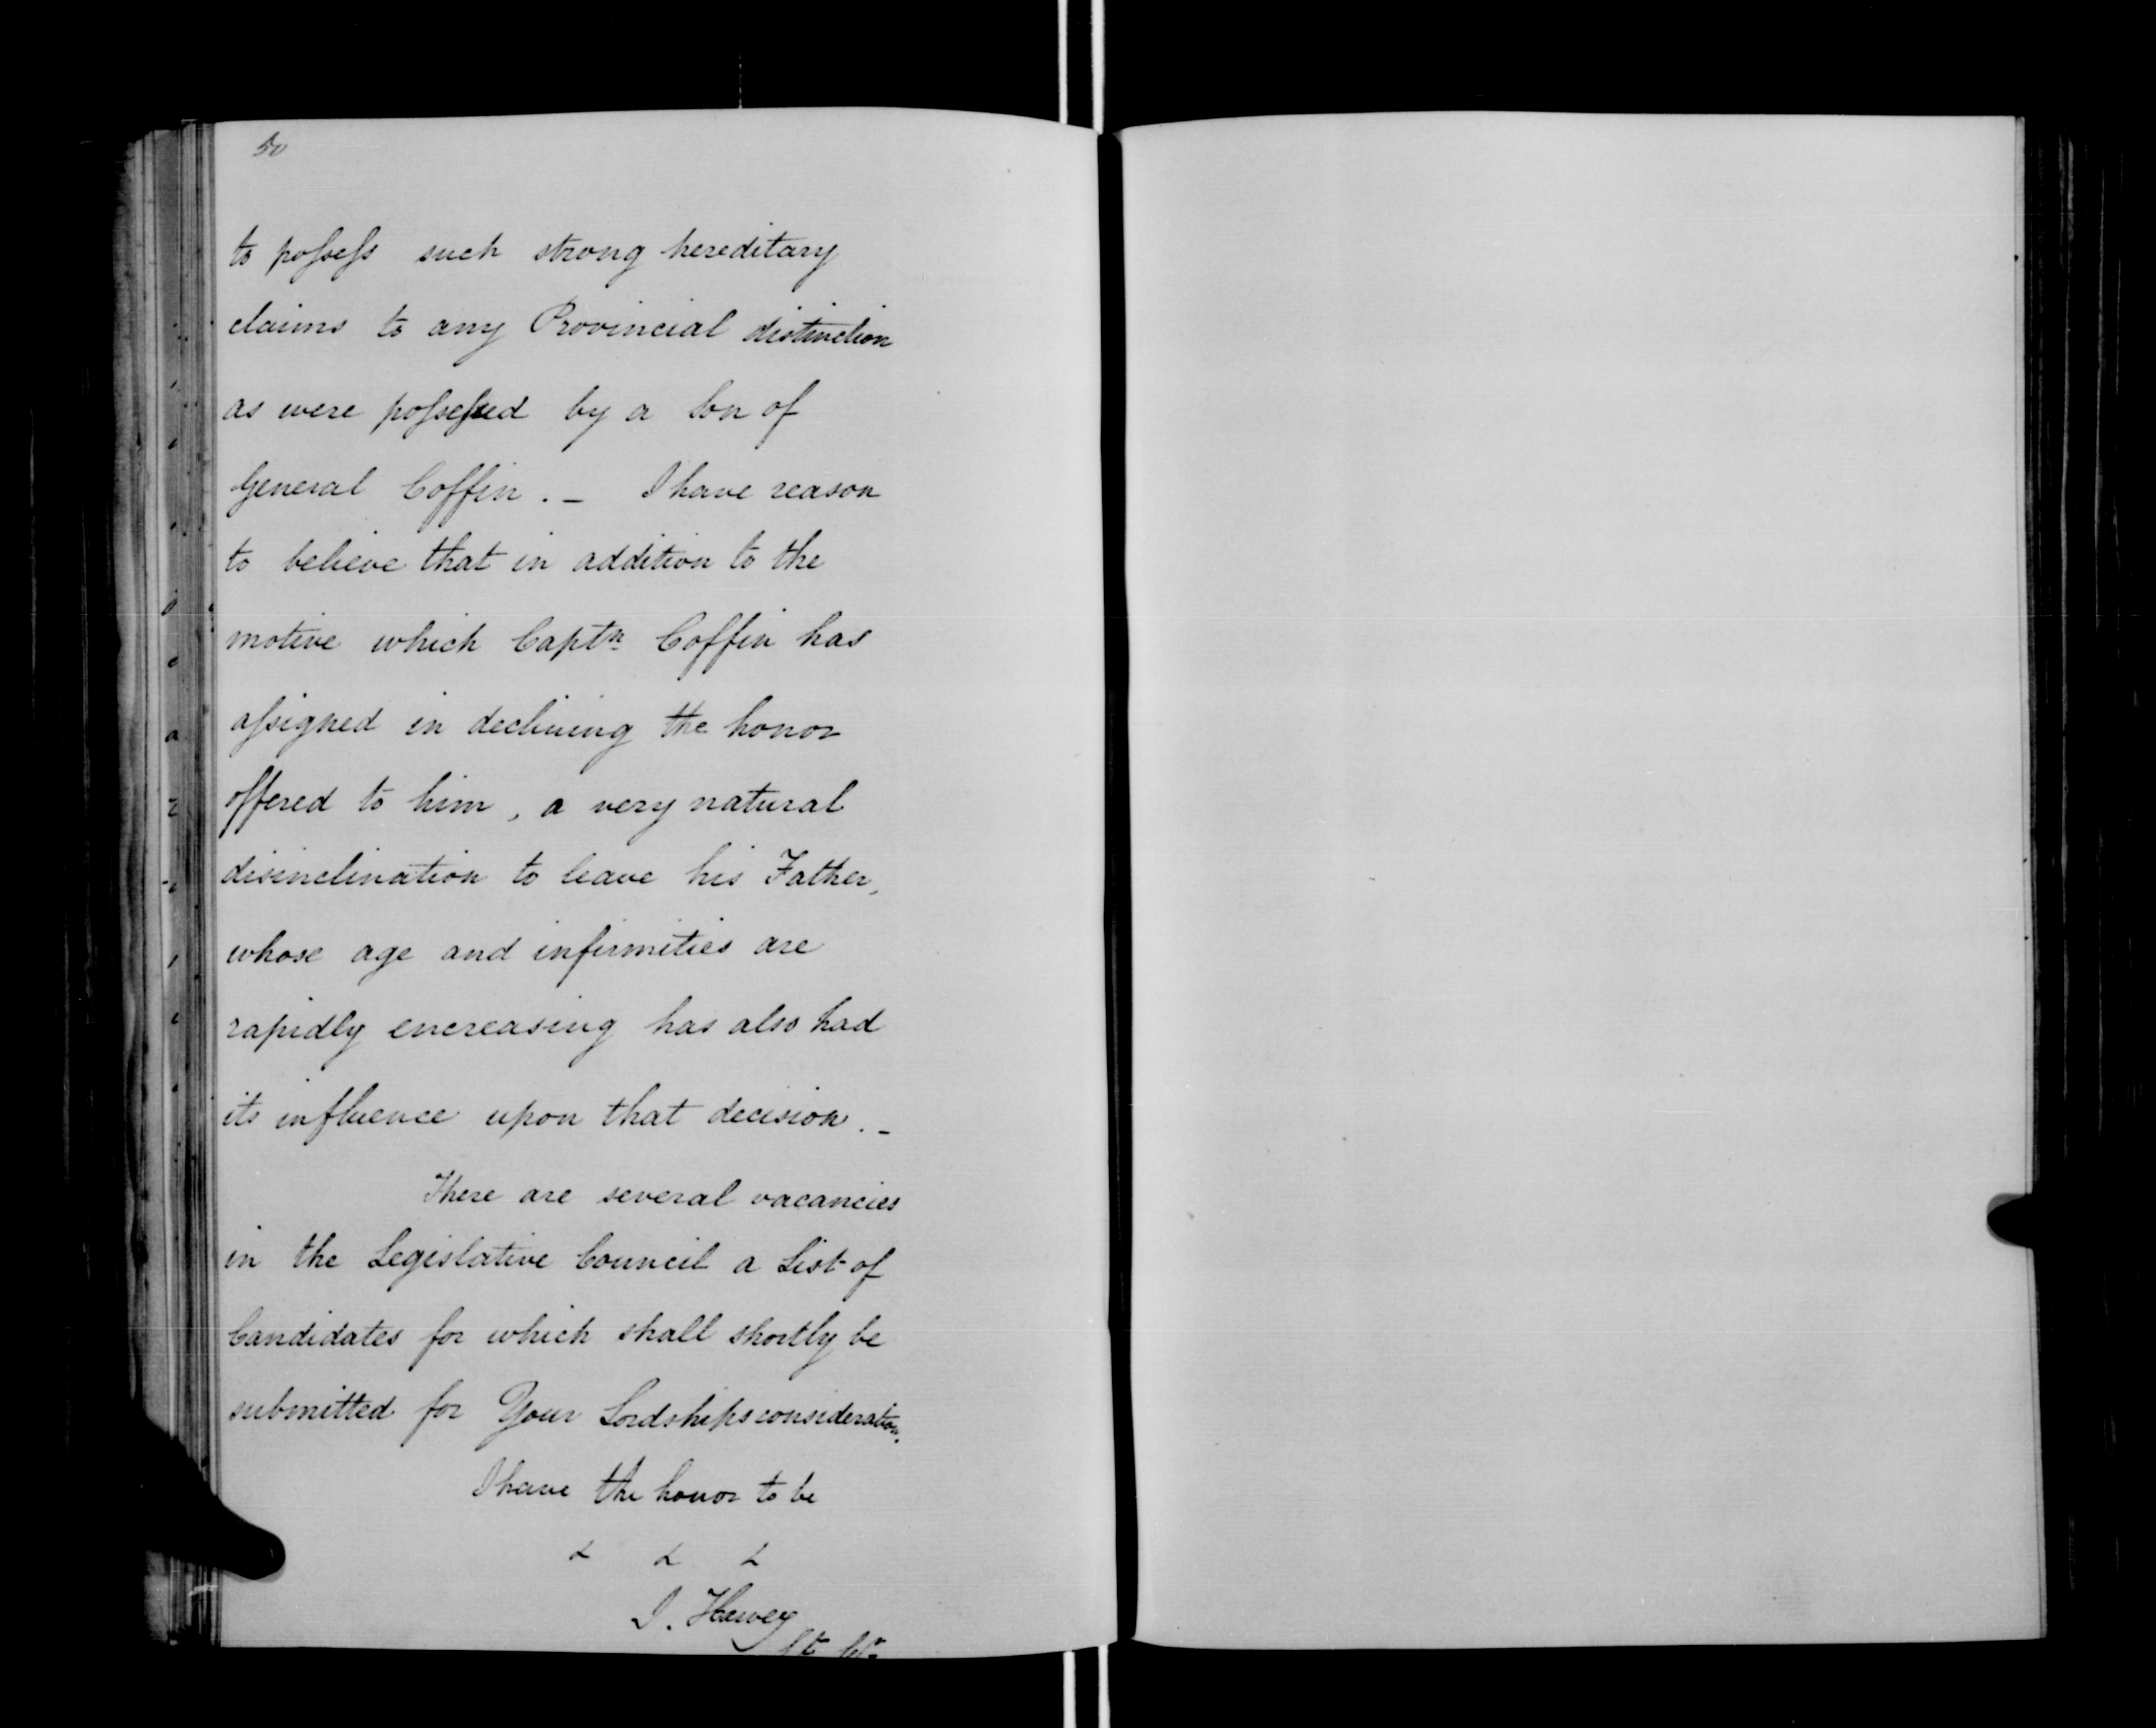 50
to possess such strong hereditary
claims to any Provincial distinction
as were possessed by a Son of
General Coffin. _ I have reason
to believe that in addition to the
motive which Captn Coffin has
assigned in declining the honor
offered to him, a very natural
disinclination to leave his Father,
whose age and infirmities are
rapidly encreasing has also had
its influence upon that decision. _
There are several vacancies
in the Legislative Council a List of
Candidates for which shall shortly be
submitted for Your Lordships consideration.
I have the honor to be
& & &
J. Harvey